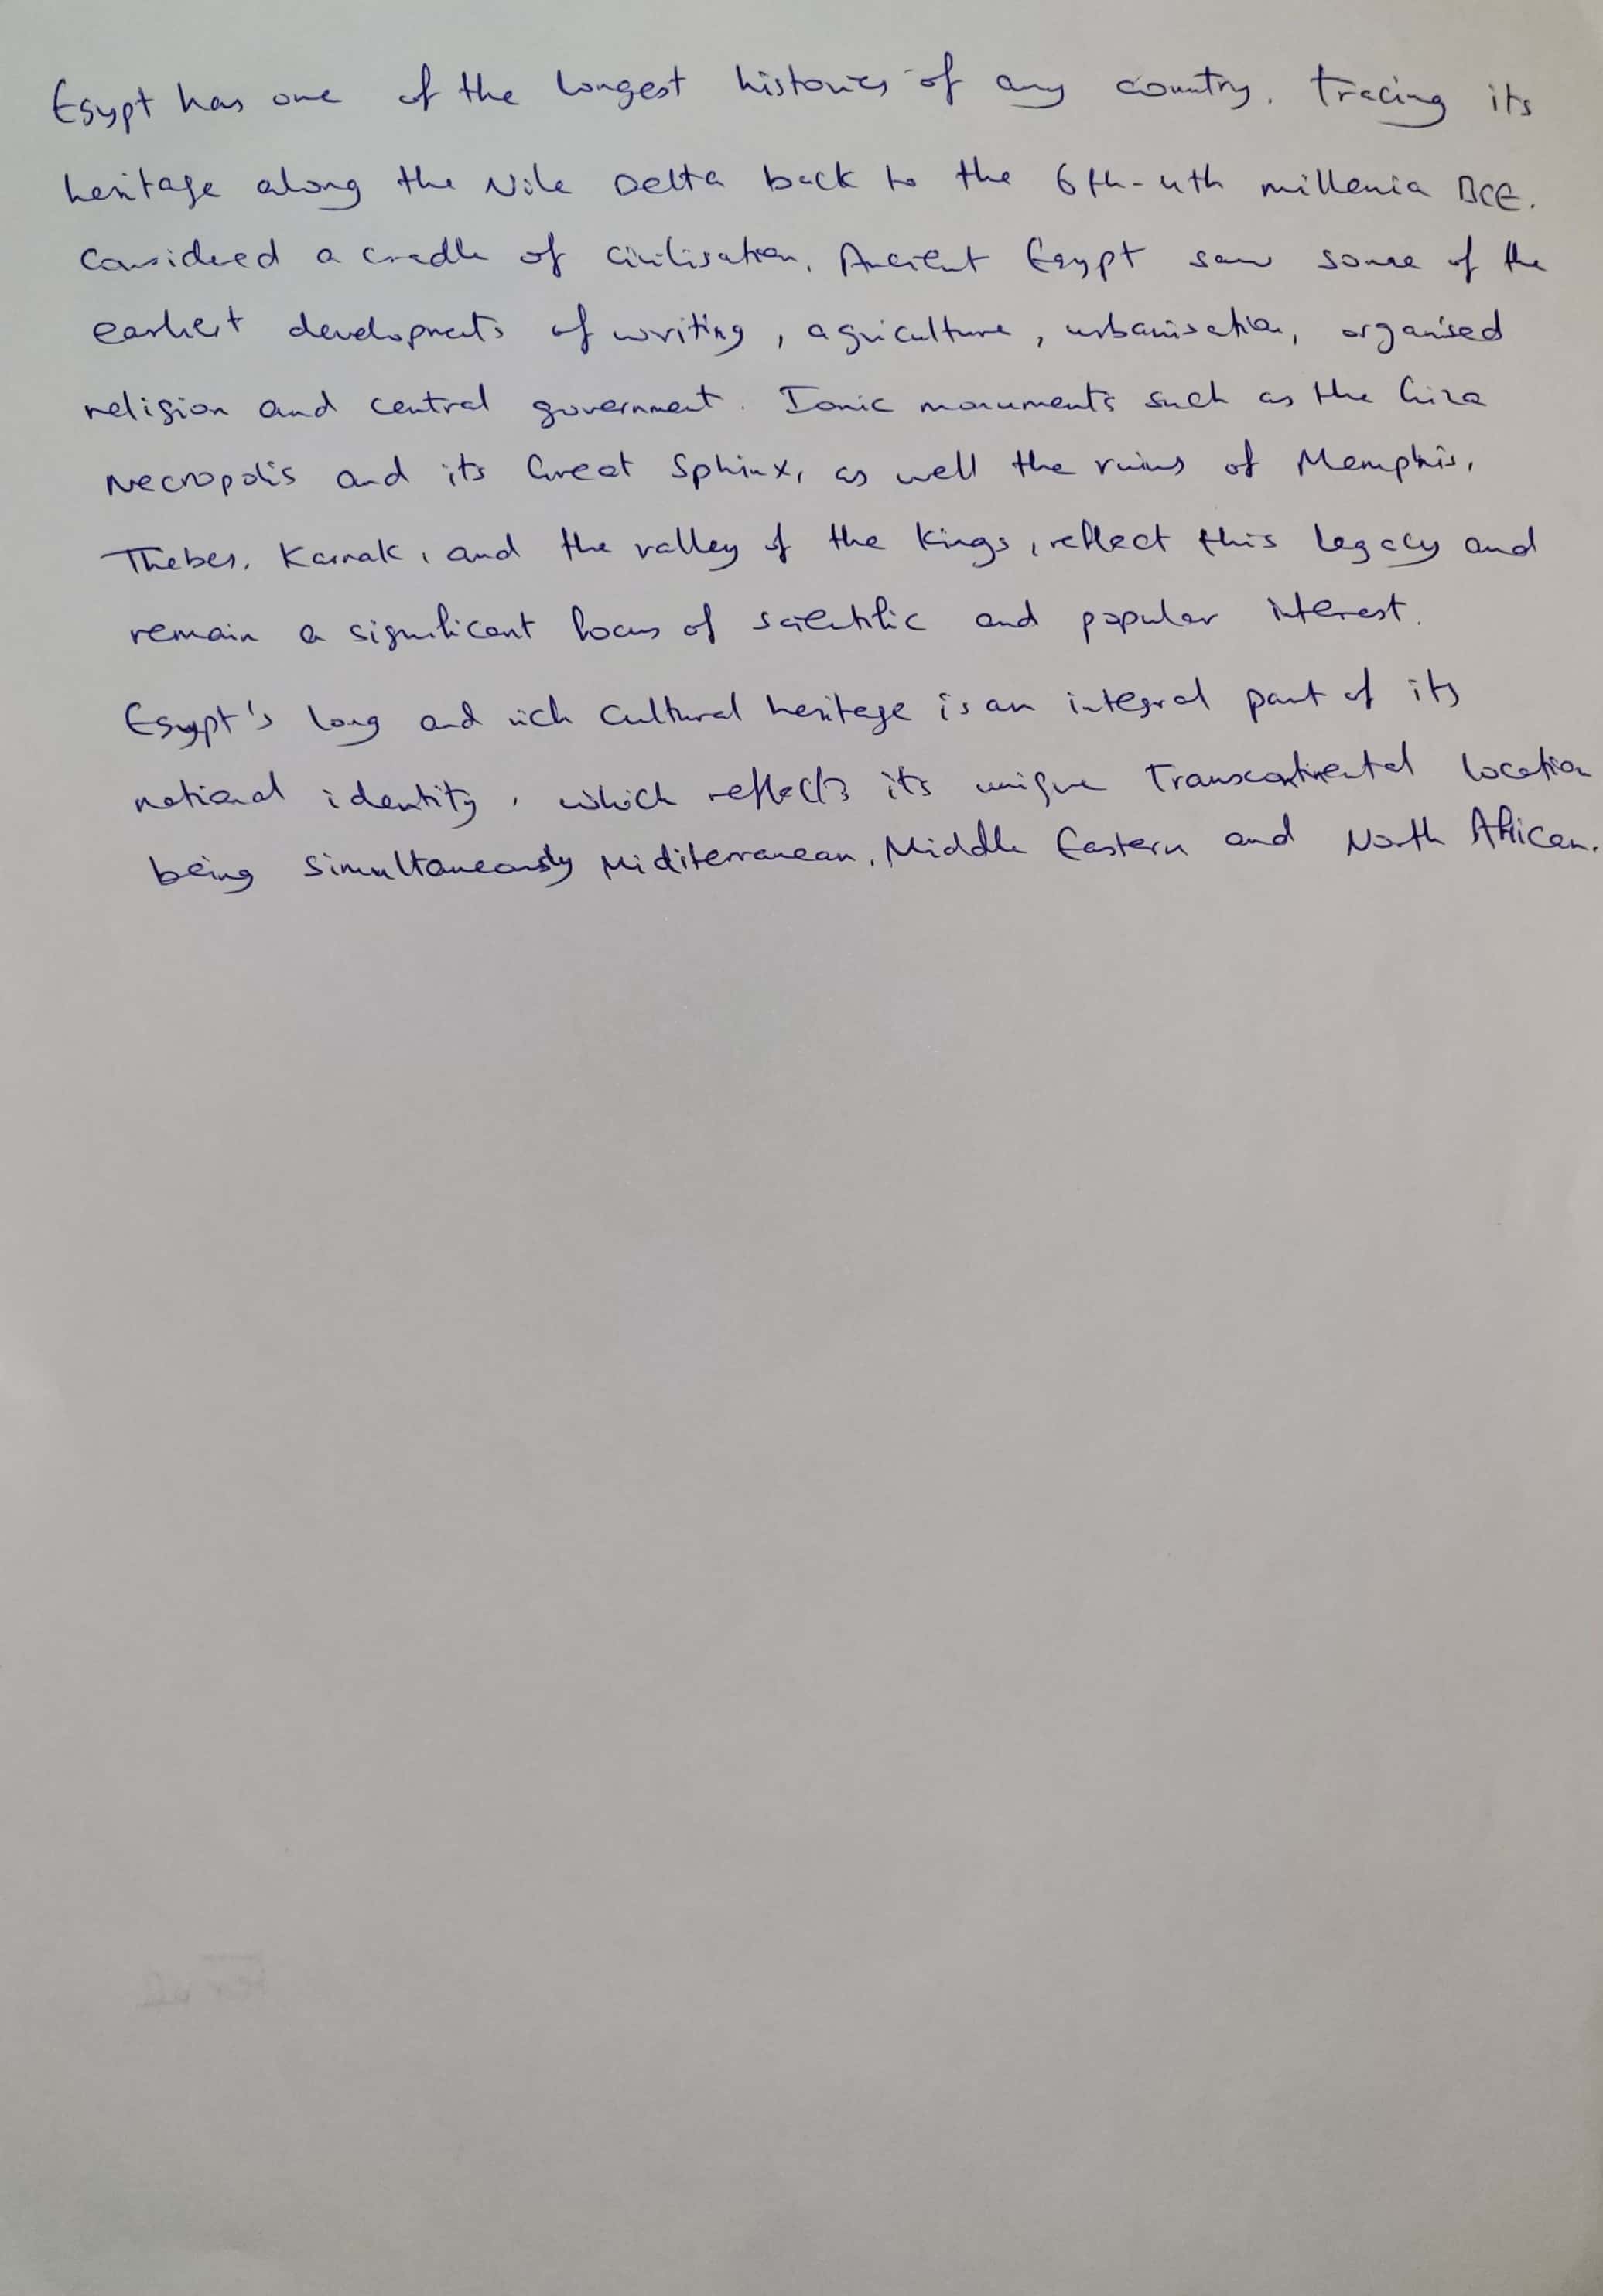 Egypt has one of the longest histories of any country, tracing its
heritage along the Nile Delta back to the 6th-4th millenia BCE.
Considered a cradle of civilisation, Ancient Egypt saw some of the
earliest developments of writing, agriculture, urbanisation, organised
religion and central government. Ionic monuments such as the Giza
Necropolis and its Great Sphinx, as well the ruins of Memphis,
Thebes, Karnak, and the valley of the Kings, reflect this legacy and
remain a significant focus of scientific and popular interest.
Egypt's long and rich cultural heritage is an integral part of its
national identity, which reflects its unique transcontinental location
being simultaneously Miditerranean, Middle Eastern and North African.